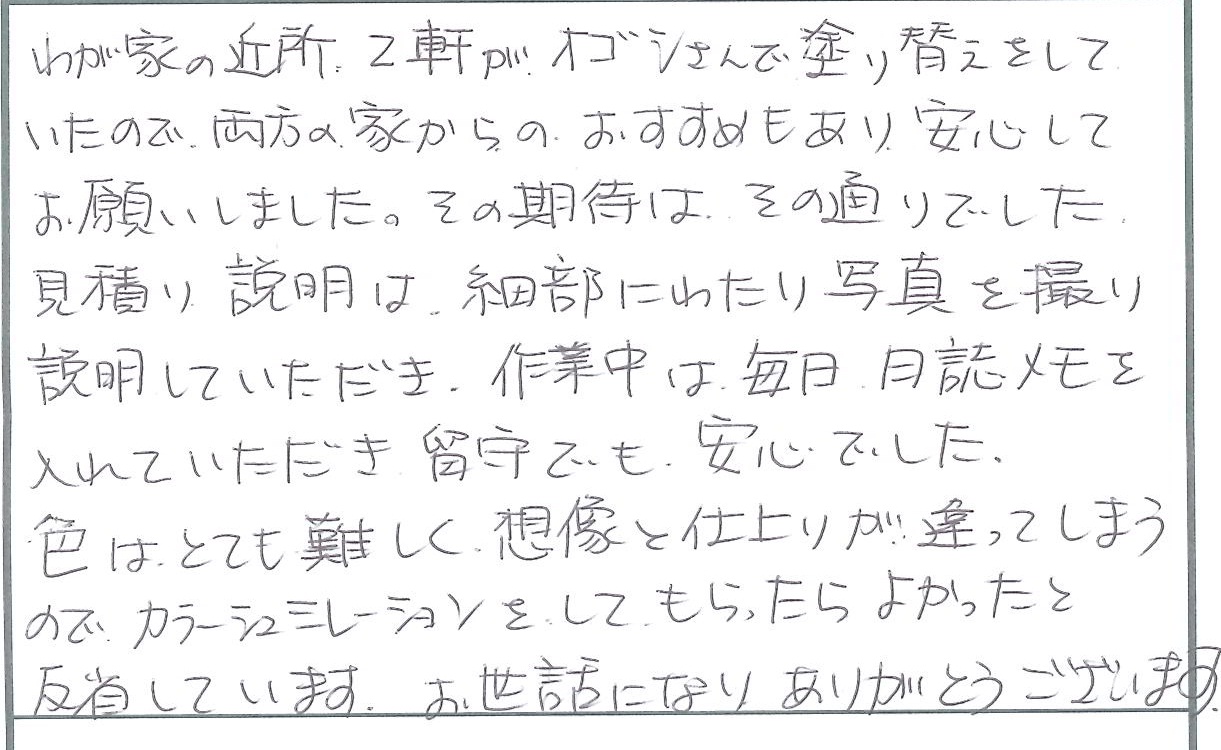 わが家の近所、2軒が、オゴシさんで塗り替えをして
いたので、両方の家からの、おすすめもあり、安心して
お願いしました。その期待は、その通りでした、
見積り、説明は、細部にわたり写真を撮り
説明していただき、作業中は、毎日、日誌メモを
入れていただき、留守でも、安心でした、
色は、とても難しく、想像と仕上りが違ってしまう
ので、カラーシュミレーションを、して、もらったらよかったと
反省しています、お世話になり、ありがとうございます、